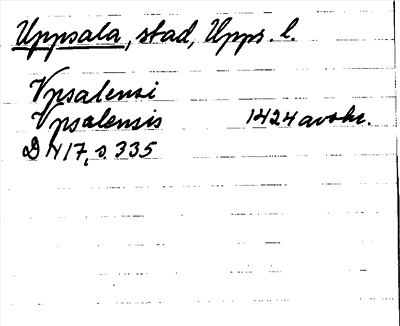 Uppsala, stad, Upps. l.
Vpsalensi
Vpsalensis 1424 avskr.
D 417, s. 335